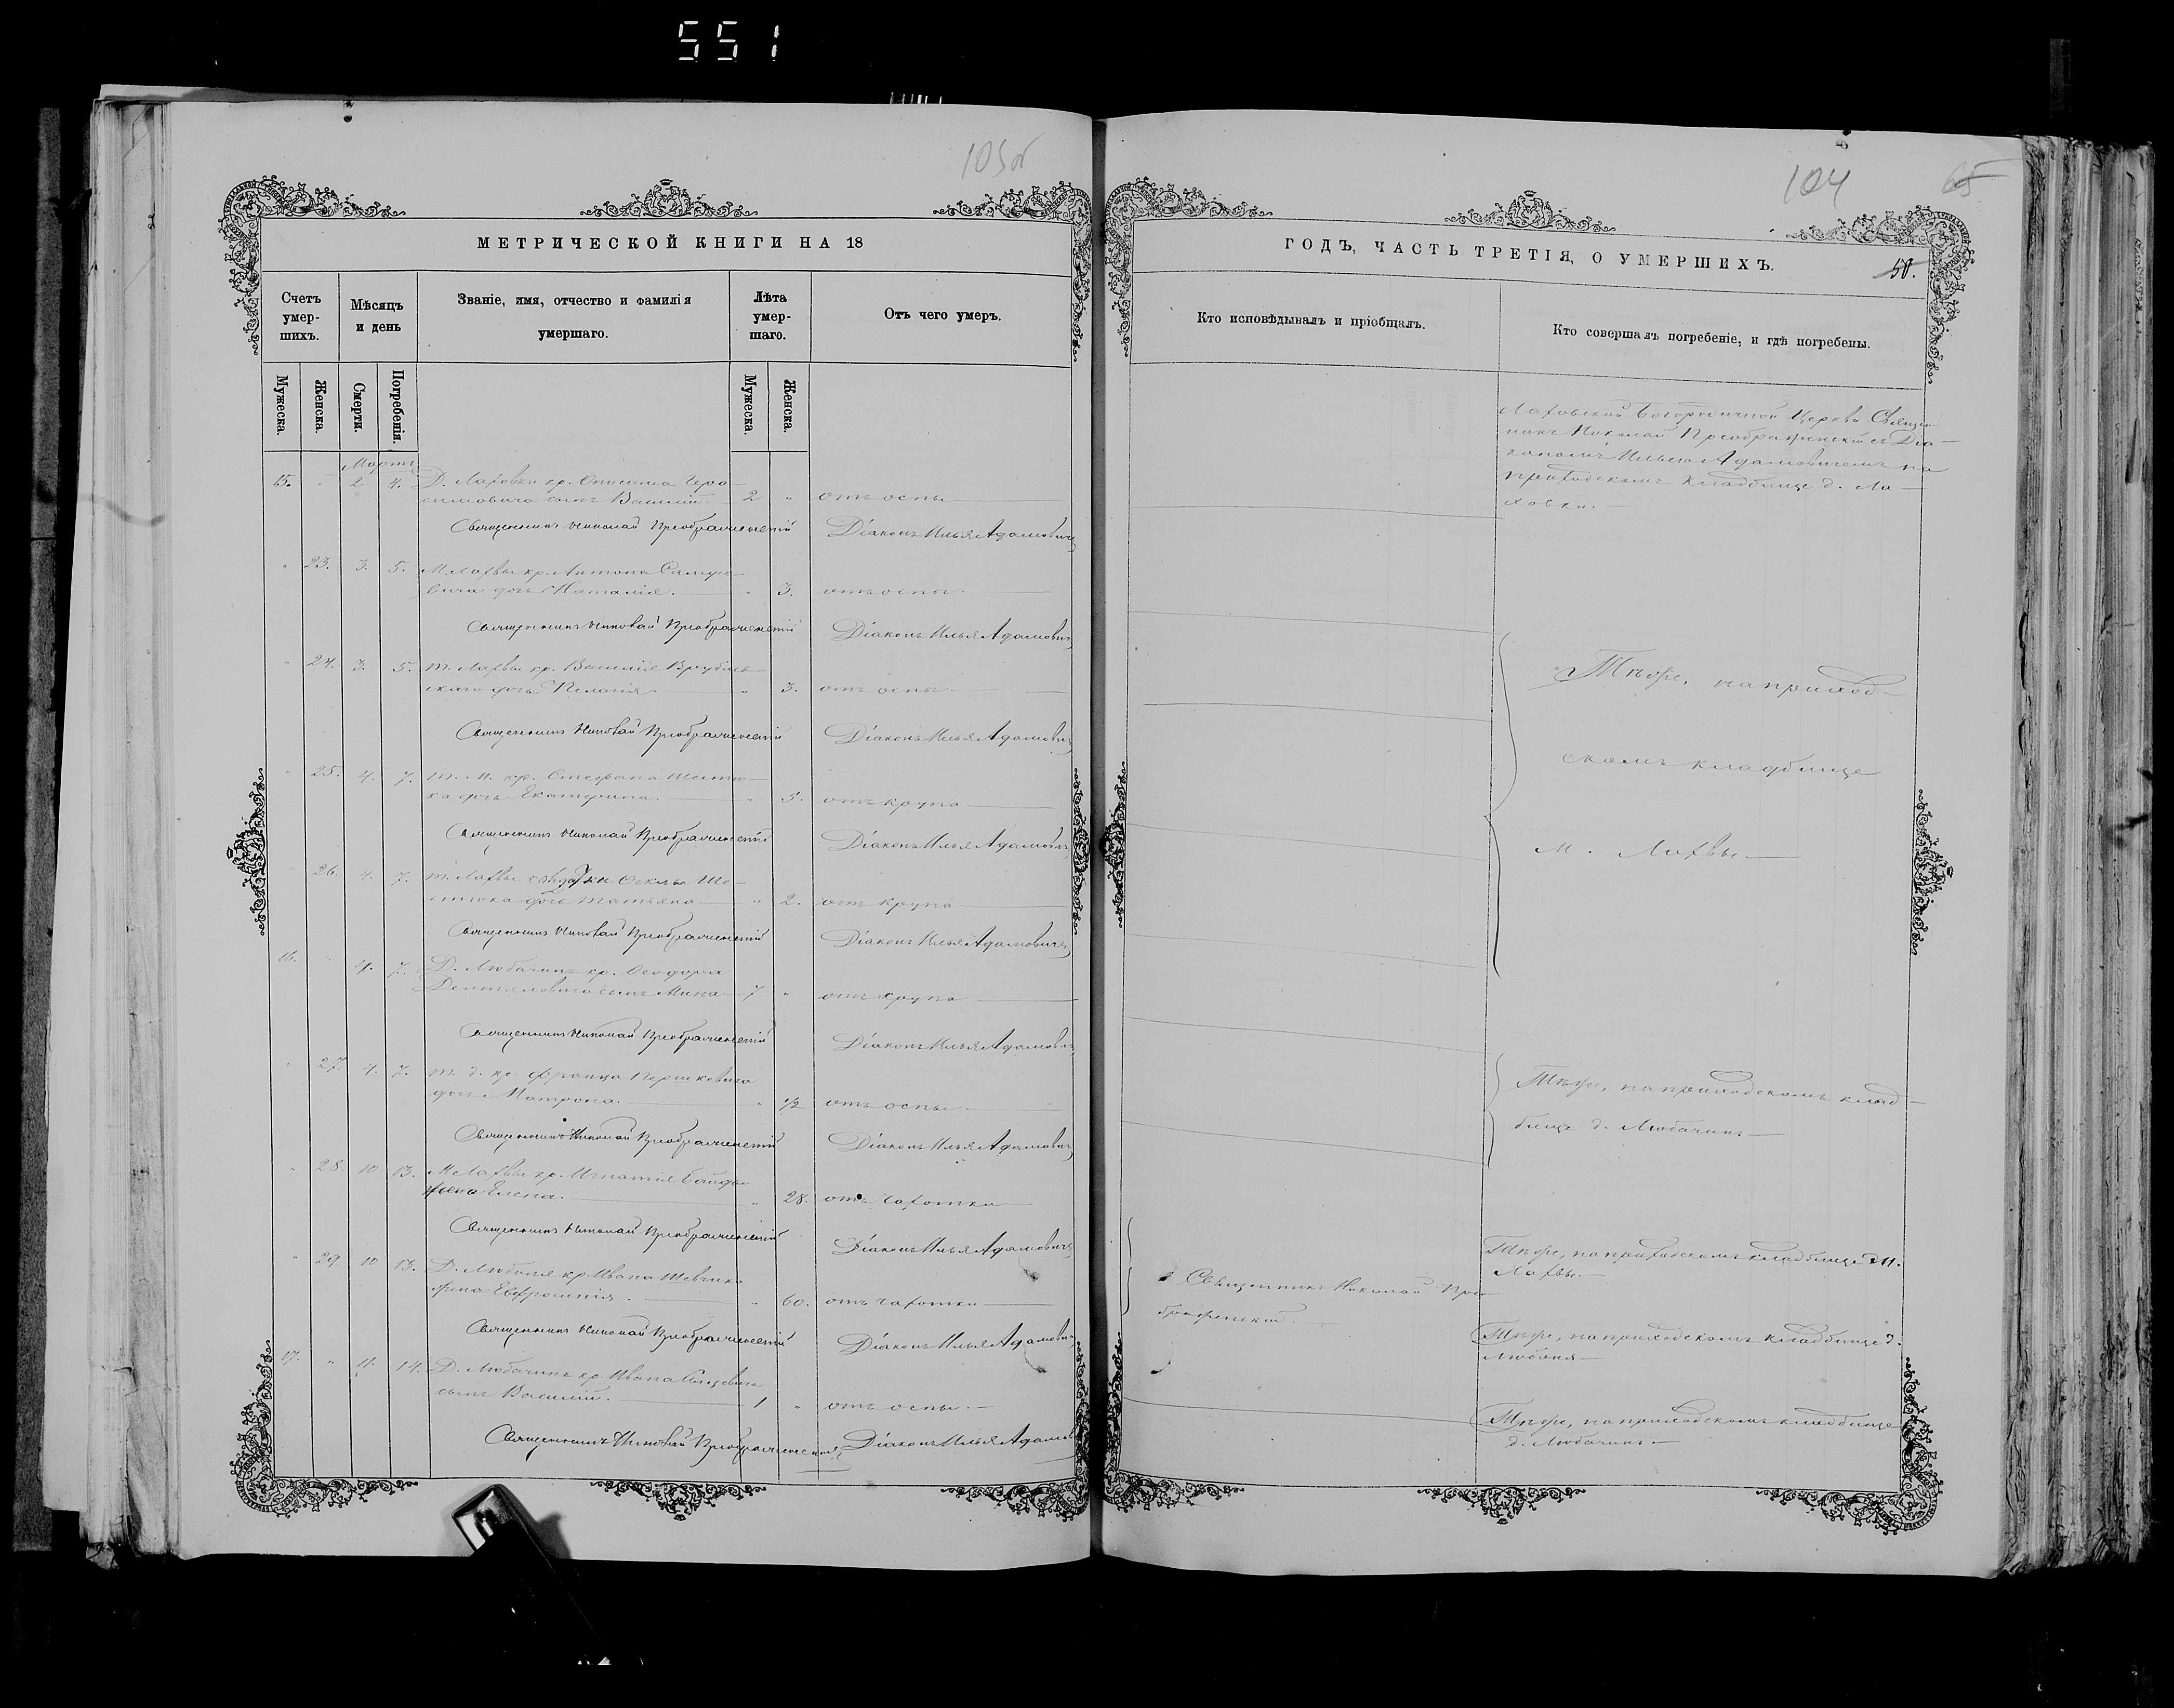 551
103об
МЕТРИЧЕСКОЙ КНИГИ НА 18
Счетъ умер- шихъ.
Мѣсяцъ и день
Званіе, имя, отчество и фамилія умершаго.
Лѣта умер- шаго.
Отъ чего умеръ.
Мужеска.
Женска.
Смерти.
Погребенія.
Мужеска.
Женска.
Мартъ
15. " 2 4. Д. Лаховки кр. Онисима Гера-
симовича сынъ Василій. 2 " отъ оспы
Священникъ Николай Преображенскій Діаконъ Илья Адамовичъ
" 23. 3. 5. М. Лахвы кр. Антона
вича дочь Наталія. " 3. отъ оспы.
Священникъ Николай Преображенскій Діаконъ Илья Адамовичъ
" 24. 3. 5. т. Лахвы кр. Василія Врублев-
скаго дочь Пелагія " 3. отъ оспы
Священникъ Николай Преображенскій Діаконъ Илья Адамовичъ
" 25. 4. 7. т. м. кр. Стефана
дочь Екатерина. " отъ крупа
Священникъ Николай Преображенскій Діаконъ Илья Адамовичъ
" 26. 4. 7. т. Лахвы Ѳеклы Ше-
дочь Татьяна " 2. отъ крупа
Священникъ Николай Преображенскій Діаконъ Илья Адамовичъ
16. " 4. 7. Д. Любачинъ кр. Ѳеодора
сынъ Мина 7 " отъ крупа
Священникъ Николай Преображенскій Діаконъ Илья Адамовичъ
" 27. 4. 7. т. д. кр. Франца
дочь Матрона. " 1/2 отъ оспы
Священникъ Николай Преображенскій Діаконъ Илья Адамовичъ
" 28. 10 13. М. Лахвы кр. Игнатія Байды
жена Елена. " 28. отъ чахотки
Священникъ Николай Преображенскій Діаконъ Илья Адамовичъ
" 29. 10 13. Д. Любоня кр. Ивана Шевчика
жена Евфросинія. " 60. отъ чахотки
Священникъ Николай Преображенскій Діаконъ Илья Адамовичъ
17. " 11. 14. Д. Любачинъ кр. Ивана
сынъ Василій. 1 " отъ оспы.
Священникъ Николай Преображенскій Діаконъ Илья Адамовичъ
104
65
ГОДЪ, ЧАСТЬ ТРЕТІЯ, О УМЕРШИХЪ.
50.
Кто исповѣдывалъ и пріобщалъ.
Кто совершалъ погребеніе, и гдѣ погребены.
Лаховской Богородичной Церкви Священ-
никъ Николай Преображенскій съ Діа-
кономъ Ильею Адамовичемъ на
приходскомъ кладбище д. Ла-
ховки.
Тѣже, на приход-
скомъ кладбище
м. Лахвы
Тѣже, на приходскомъ клад-
бище д. Любачинъ
Тѣже, на приходскомъ кладбище м.
Лахвы.
Священникъ Николай Прео-
браженскій.
Тѣже, на приходскомъ кладбище д.
Любоня
Тѣже, на приходскомъ кладбище
д. Любачинъ